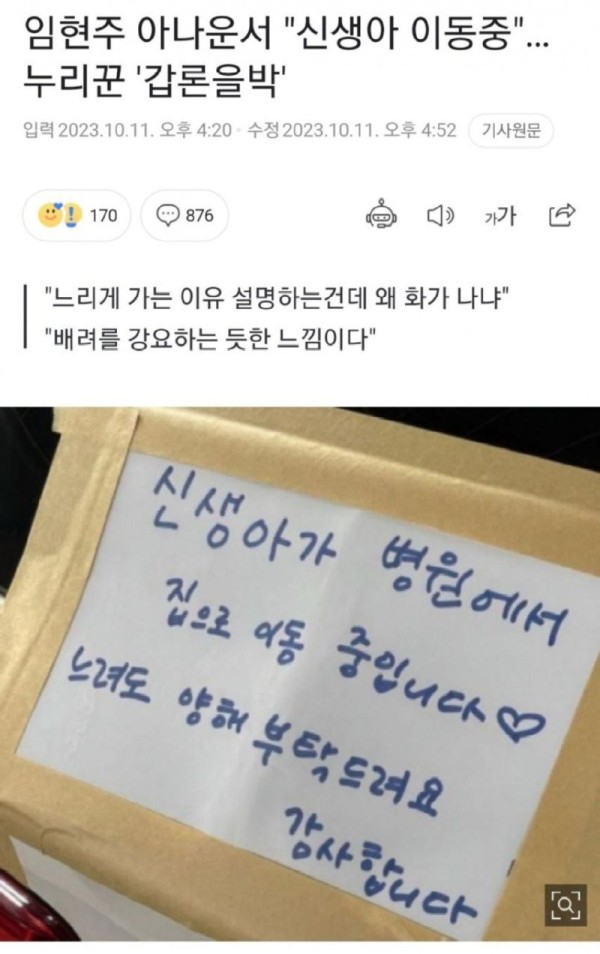 임현주 아나운서 "신생아 이동중"...
누리꾼 '갑론을박'
입력 2023.10.11. 오후 4:20 · 수정 2023.10.11. 오후 4:52 기사원문
170 876 가가
"느리게 가는 이유 설명하는건데 왜 화가 나냐"
"배려를 강요하는 듯한 느낌이다"
신생아가 병원에서
집으로 이동 중입니다♡
느려도 양해 부탁드려요
감사합니다